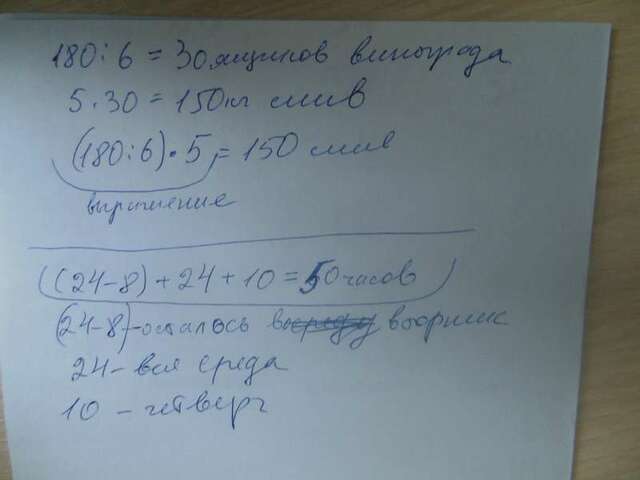 180:6 = 30 ящиков винограда
5·30 = 150 кг слив
(180:6)·5 = 150 слив
выражение
((24-8)+24+10 = 50 часов)
(24-8) - осталось вторник
24 - вся среда
10 - четверг